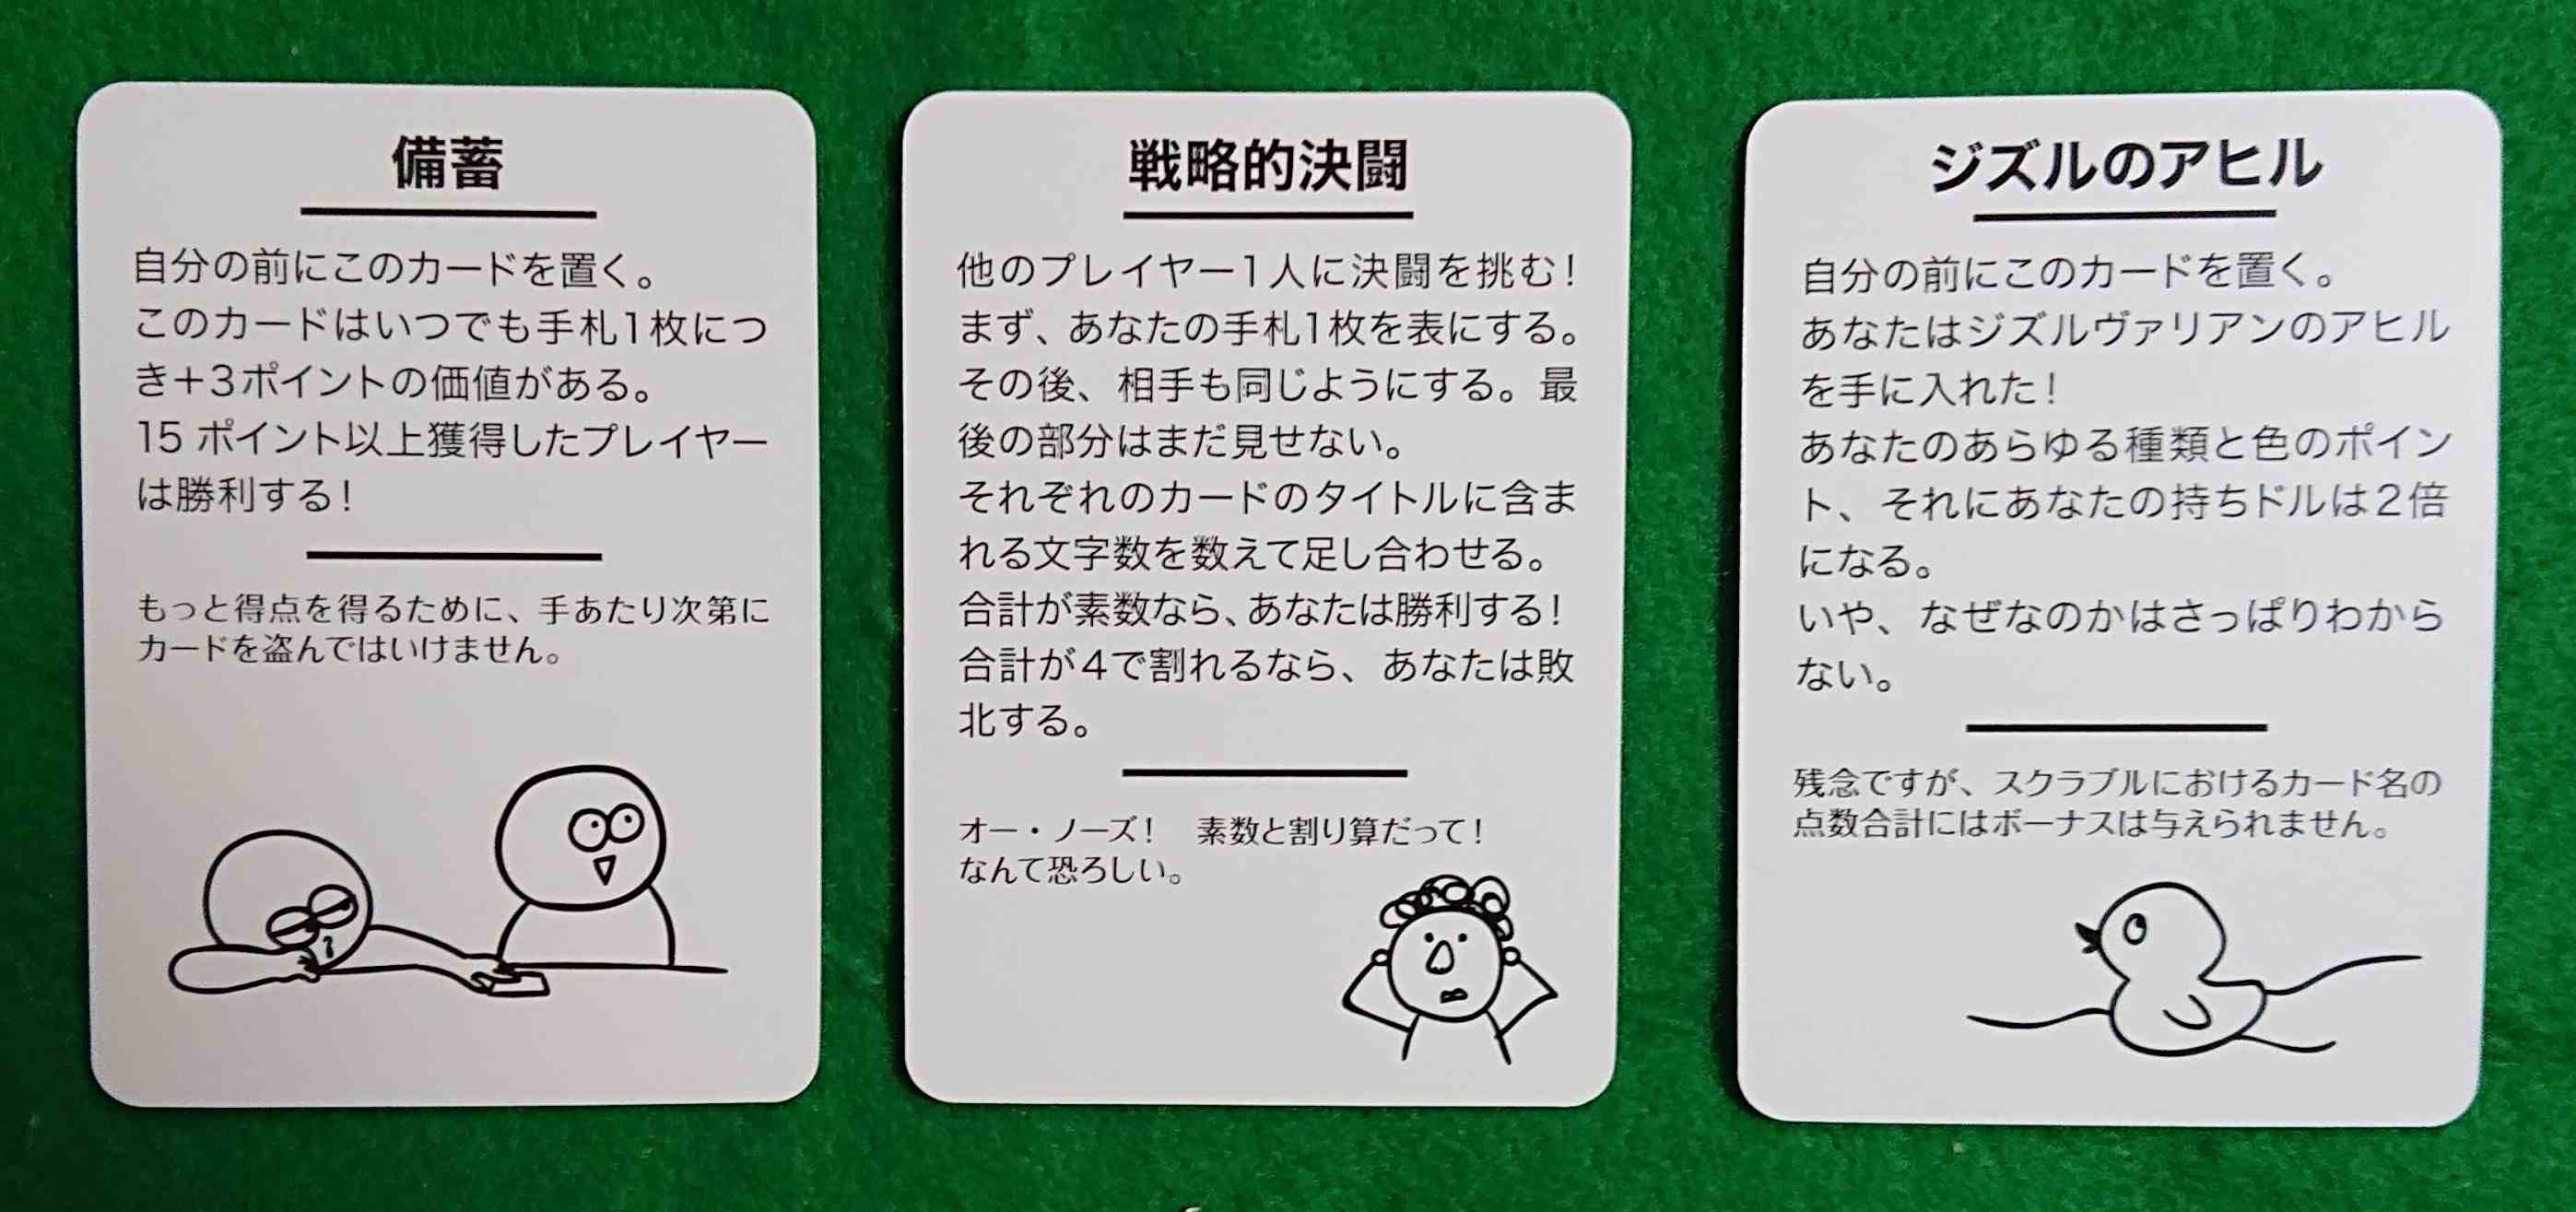 備蓄
自分の前にこのカードを置く。
このカードはいつでも手札1枚につ
き+3ポイントの価値がある。
15 ポイント以上獲得したプレイヤー
は勝利する！
もっと得点を得るために、手あたり次第に
カードを盗んではいけません。
戦略的決闘
他のプレイヤー1人に決闘を挑む！
まず、あなたの手札1枚を表にする。
その後、相手も同じようにする。最
後の部分はまだ見せない。
それぞれのカードのタイトルに含ま
れる文字数を数えて足し合わせる。
合計が素数なら、あなたは勝利する！
合計が4で割れるなら、あなたは敗
北する。
オー・ノーズ！　素数と割り算だって！
なんて恐ろしい。
ジズルのアヒル
自分の前にこのカードを置く。
あなたはジズルヴァリアンのアヒル
を手に入れた！
あなたのあらゆる種類と色のポイン
ト、それにあなたの持ちドルは2倍
になる。
いや、なぜなのかはさっぱりわから
ない。
残念ですが、スクラブルにおけるカード名の
点数合計にはボーナスは与えられません。